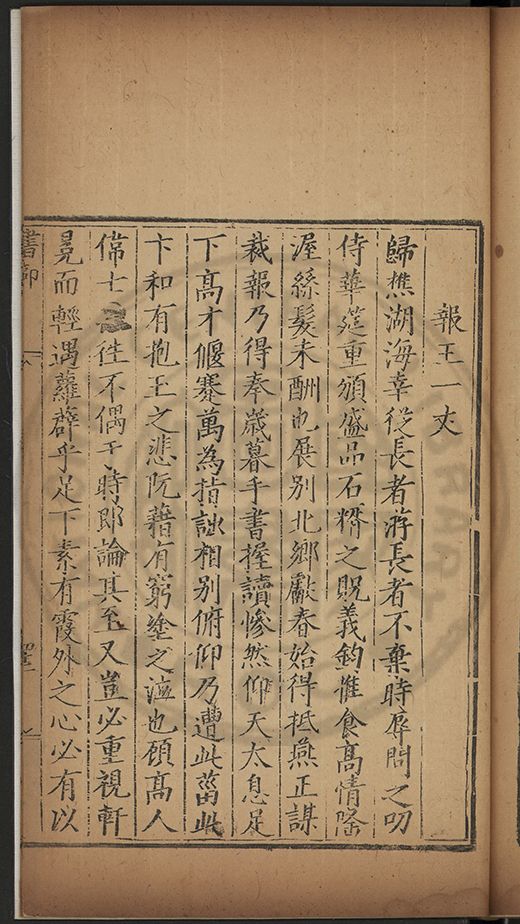 報王一丈
歸樵湖海幸從長者游長者不棄時辱問之叨
侍華筵重頒盛品石糈之貺義鈞推食高情隆
渥絲髮未酬也展別北鄉獻春始得抵燕正謀
裁報乃得奉歲暮手書握讀慘然仰天太息足
下高才偃蹇萬為指訟相別俯仰乃遭此葘此
卞和有抱王之悲阮藉有窮塗之泣也顧高人
偉士徃徃不偶于時即論其至又豈必重視軒
冕而輕遇蘿薜乎足下素有霞外之心必有以
書